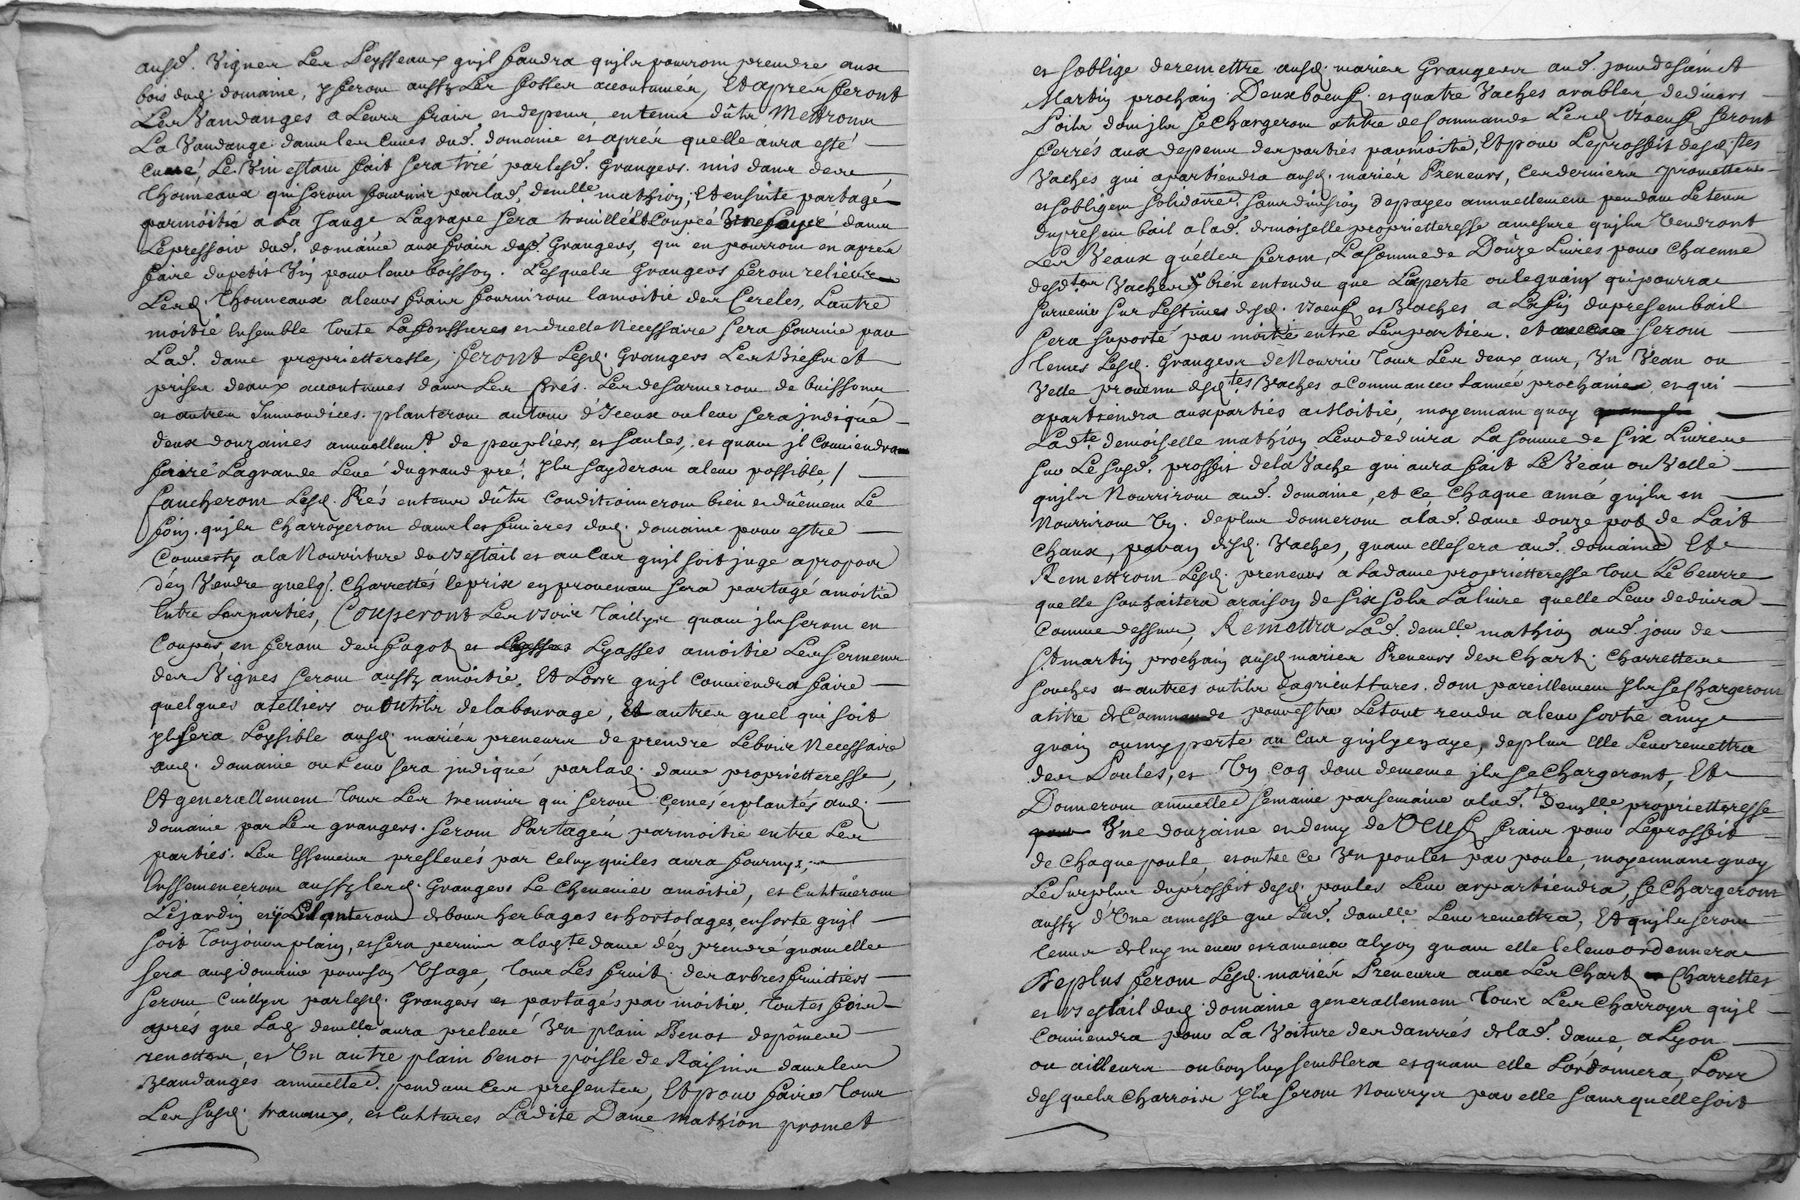 ausd. Vignes Les Peysseaux qu'jl faudra qu'jls pourront prendre aux
bois dud. domaine, y feront aussy Les fosses accoutumés, Et apres feront
Les Vandanges a Leurs frais et depens, en tems dûs Mettront
La Vandange dans les Cuves dud. domaine et aprés quelle aura esté
Cuvé, Le Vin estant fait sera tiré par lesd. Grangers mis dans des
Thonneaux qui seront fournir par lad. demlle. mathion, Et ensuite partagé
par moitié a La Jauge La grape sera trouillé Et Coupée dans
Le pressoir dud. domaine aux frais desd. Grangers, qui en pourront en apres
faire du petit Vin pour leur boisson. Lesquels Grangers feront relier
Lesd. Thonneaux a leurs frais fourniront la moitié des Cercles, Lautre
moitié Ensemble Toute La Necessaire sera fournie par
Lad. dame proprietteresse, feront Lesd. Grangers Les Biefs et
prises deaux accoutumés dans Les Prés. Les desarmeront de buissons
et autres Immondices. planteront autour d'Iceux ou leur sera jndiqué
deux douzaines annuellemt. de peupliers, et saules, et quant jl Conviendra
faire La grande Levé du grand pré, Jls sayderont a leur possible, /
faucheront Lesd. Prés en tems dûs Conditionneront bien et dûement Le
foin. qu'jls Charroyeront dans les feniéres dud. domaine pour estre
Converty a la Nourriture du Bestail et au Cas qu'jl soit jugé apropos
d'en Vendre quelq. Charrettés le prix en provenant sera partagé a moitié
Entre Les parties, Couperont Les Bois Taillys quant jls seront en
Coupes, en feront des fagot et Lyasses a moitié Les sermens
des Vignes seront aussy a moitié, Et Lors qu'jl Conviendra faire
quelques atelliers ou outils de labourage, Et autres quel qui soit
Jl sera Loysible ausd. mariés preneurs de prendre Le bois Necessaire
aud. domaine ou Leur sera jndiqué par lad. dame proprietteresse,
Et generallement Tous Les tremois qui seront semés et plantés aud.
domaine par Les grangers. seront Partagés par moitié entre Les
parties. Les Essemens preslevés par Celuy qui les aura fournys,
Enssemenceront aussy lesd. Grangers Le Chenevier a moitié, et Cultiveront
Le jardin et y planteront de bons herbages et hortolages, en sorte qu'jl
soit Toujours plain, et sera permis a lad. te. dame d'en prendre quant elle
sera aud. domaine pour son Usage, Tous Les fruit des arbres fruitiers
seront Cuillys par lesd. Grangers et partagés par moitié. Toutes fois
aprés que Lad. demlle. aura prelevé Un plain Benot de pômes
renettes, et Un autre plain Benot poisle de Raisins dans les
Veandanges annuelles. pendant Ces presentes, Et pour faire Tous
Les susd. travaux, et Cultures Ladite Dame Mathion promet
et soblige de remettre ausd. mariés Grangers aud. jour de saint
Martin prochain Deux boeufs et quatre Vaches arables de divers
Poils dont jls se Chargeront atitre de Commande Lesd. Boeufs seront
ferrés aux depens des parties par moitié, Et pour Le proffit desd. tes
Vaches qui apartiendra ausd. mariés Preneurs, Ces derniers promettent
et sobligent solidaires sans division de payer annuellement pendant Le tems
du present bail a lad. demoiselle proprietteresse amesure qu'jls Vendront
Les Veaux qu'elles feront, La somme de Douze Livres pour Chacune
desd. tes Vaches bien entendu que La perte ou le quain qui pourra
survenir sur Lestimes desd. Boeufs et Vaches a La fin du present bail
sera suporté par moitié entre Les parties. et seront
tenus Lesd. Grangers de Nourrir Tous Les deux ans, Un Veau ou
Velle provenu desd. tes Vaches a Commancer Lannée prochaine, et qui
apartiendra aux parties a Moitié, moyennant quoy
Ladte. demoiselle mathion Leur deduira La somme de six Livres
sur Le susd. proffit de la Vache qui aura fait Le Veau ou Velle
qu'jls Nourriront aud. domaine, et ce Chaque année qu'jls en
Nourriront Un. de plus donneront a lad. dame douze pot de Lait
Chaux, par an desd. Vaches, quant elle sera aud. domaine, Et
Remettront Lesd. preneurs a Ladame proprietteresse Tout Le beurre
quelle souhaitera a raison de six sols La livre quelle Leur deduira
Comme dessus, Remettra Lad. demlle. mathion aud. jour de
St martin prochain ausd. mariés Preneurs des Chart. Charrettes
souches et autres outils dagricultures. dont pareillement Jls se Chargeront
atitre de Commande pour estre Le tout rendu a leur sortie amy
quain ou my perte au Cas qu'jl y en aye, de plus Elle Leur remettra
des Poules, et Un Coq dont de meme jls se Chargeront, Et
Donneront annuelles semaine par semaine a lad. te demlle proprietteresse
Une douzaine et demy de Oeufs frais pour Le proffit
de Chaque poule, et outre ce Un poulet par poule, moyennant quoy
Le surplus du proffit desd. poules Leur apartiendra, se Chargeront
aussy d'Une annesse que Lad. demlle. Leur remettra, Et qu'jls seront
tenus de luy mener et ramener a lyon quant elle le leur ordonnera
De plus feront Lesd. mariés Preneurs avec Les Chart Charrettes
et Bestail dud. domaine generallement Tous Les Charroys qu'jl
Conviendra pour La Voiture des danrrés de lad. dame, a Lyon
ou ailleurs ou bon luy semblera et quant elle Lordonnera, Lors
des quels Charrois Jls seront Nourrys par elle sans quelle soit